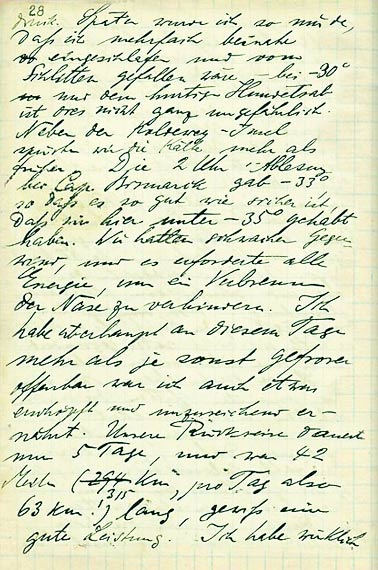 28
druck. Später wurde ich so müde,
daß ich mehrfach beinahe
eingeschlafen und vom
Schlitten gefallen wäre – bei –30°
und dem hurtigen Hundetrab
ist dies nicht ganz ungefährlich.
Neben der Koldewey-Insel
spürten wir die Kälte mehr als
früher. Die 2 Uhr-Ablesung
bei Cap Bismarck gab –33°
so daß es so gut wie sicher ist,
daß wir hier unter –35° gehabt
haben. Wir hatten schwachen Gegen-
wind, und es erforderte alle
Energie, um ein Verbrennen
der Nase zu verhindern. Ich
habe überhaupt an diesem Tage
mehr als je sonst gefroren
offenbar war ich auch etwas
erschöpft und unzureichend er-
nährt. Unsere Rückreise dauerte
nur 5 Tage, und war 42
Meilen (294 km, pro Tag also
315
63 km!) lang, gewiß eine
gute Leistung. Ich habe wirklich